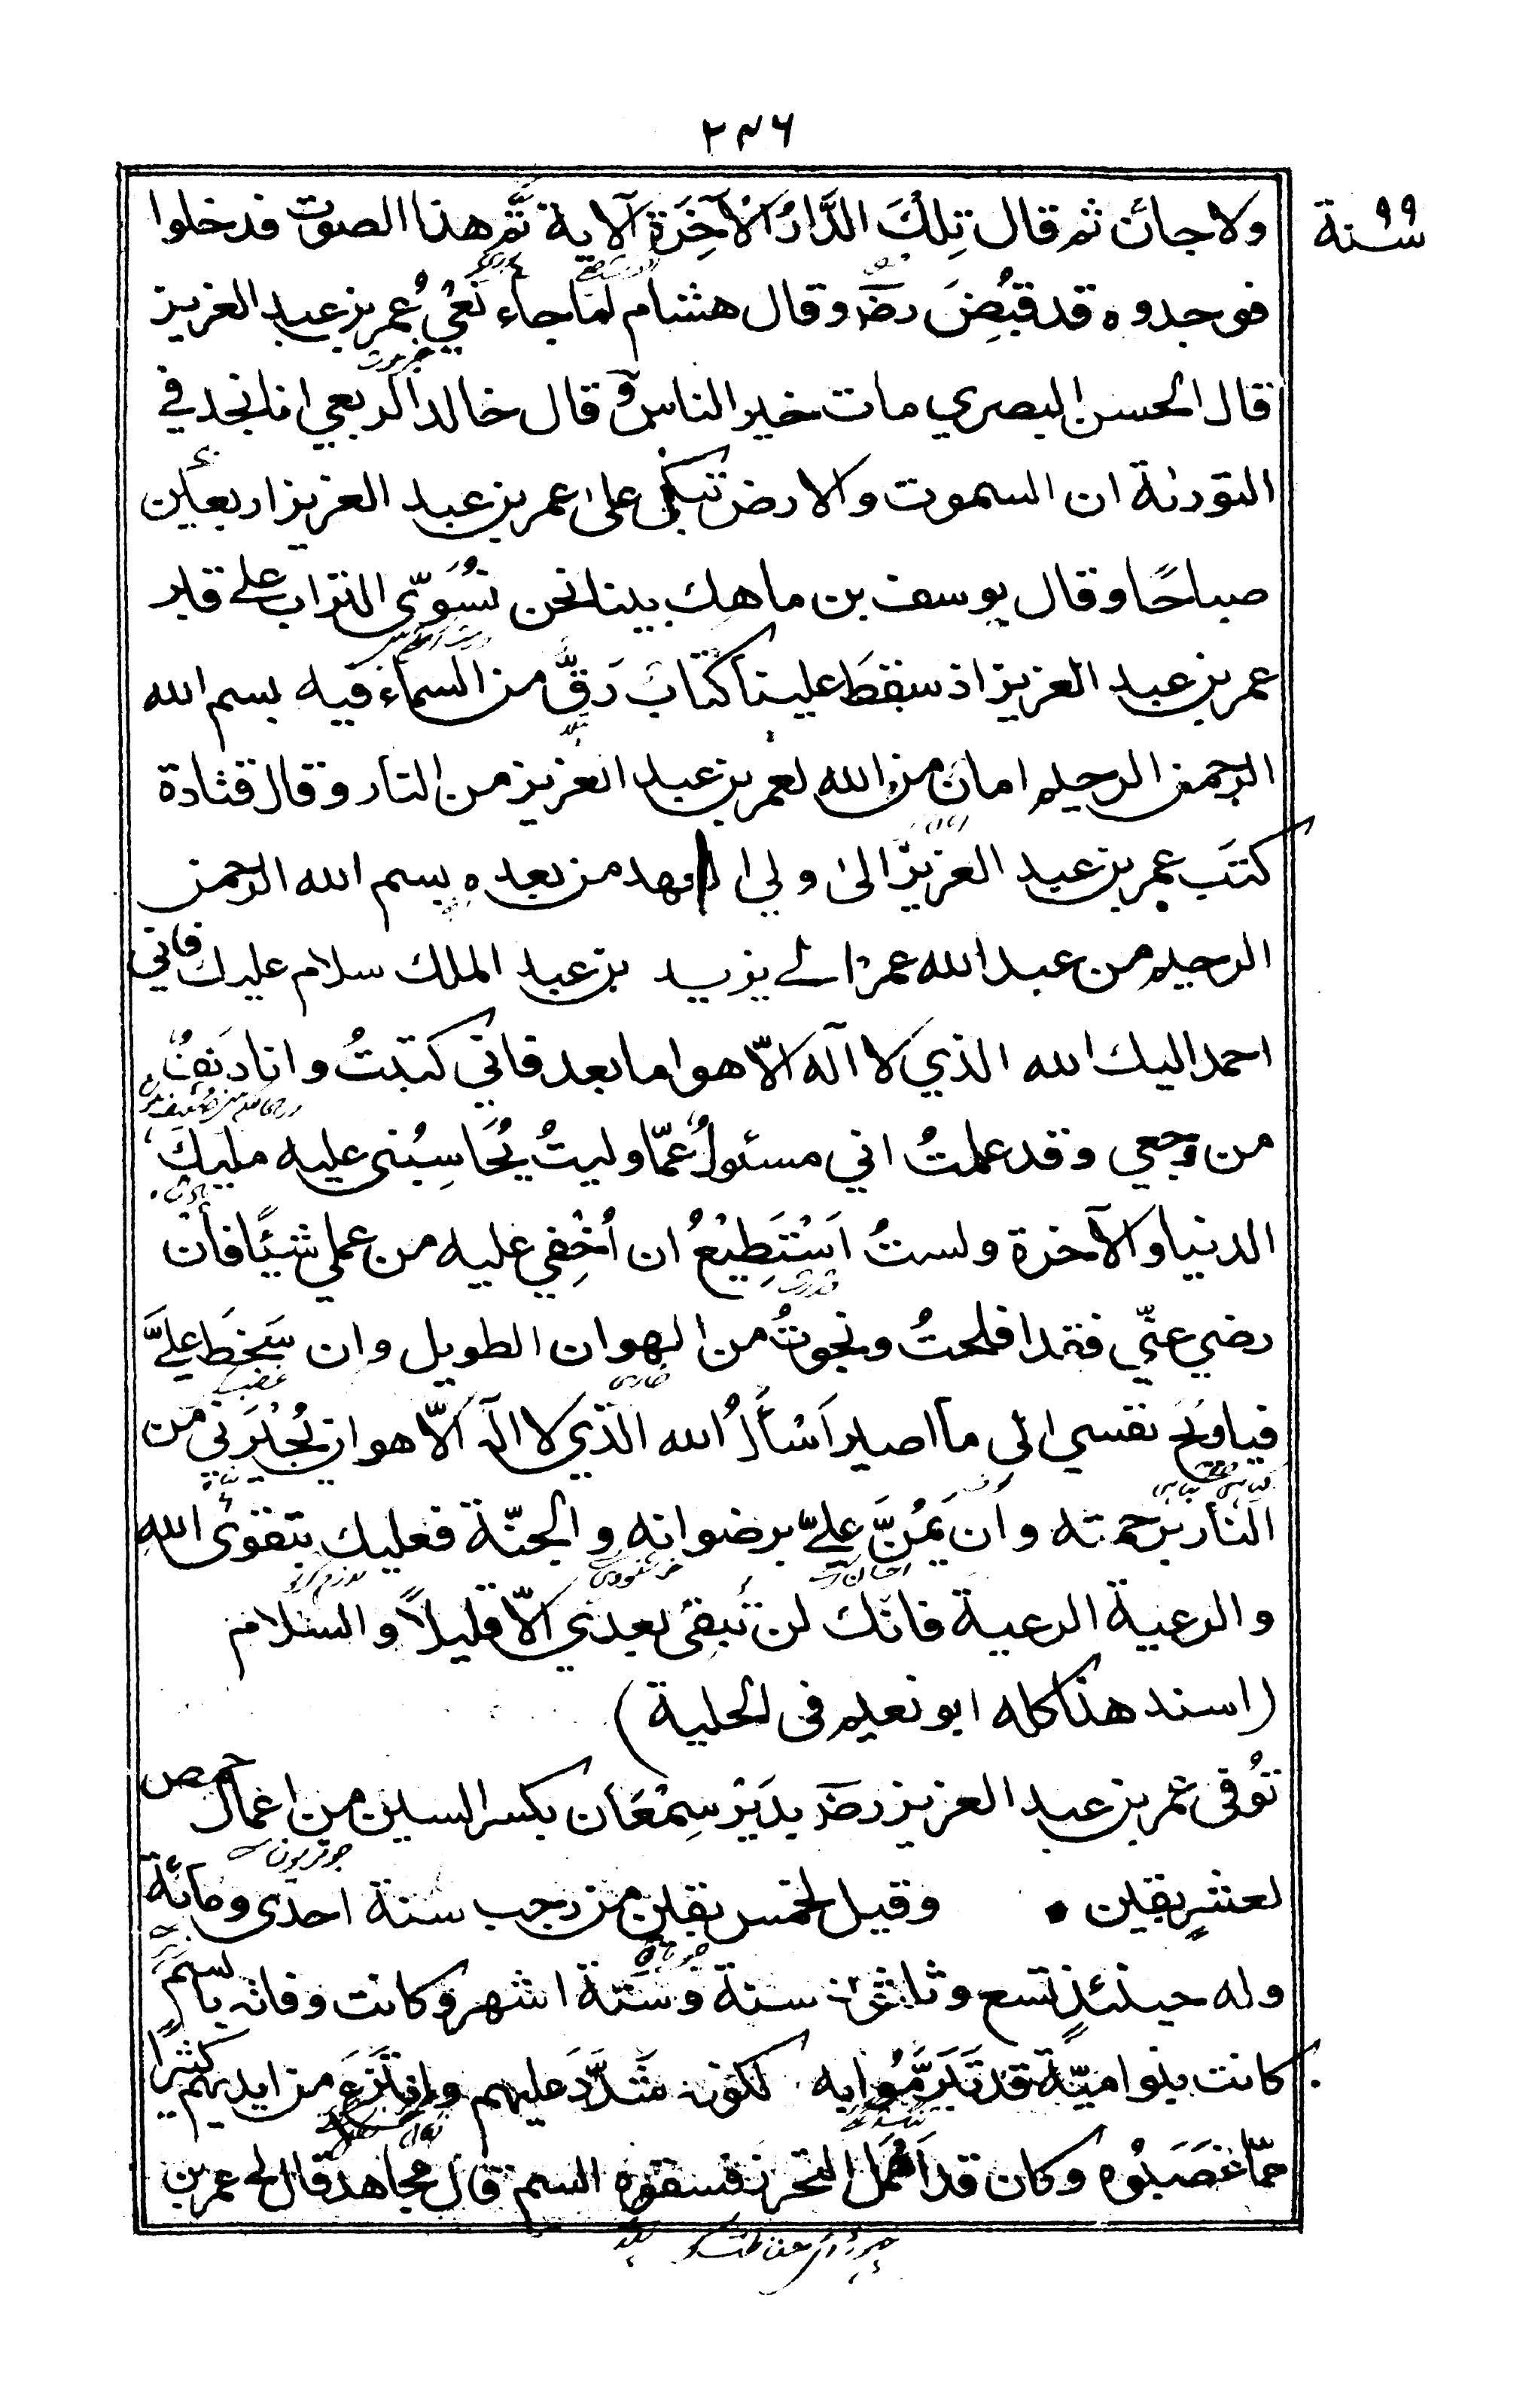 ٢٤٦
سنة ٩٩
ولا جانّ ثم قال تِلْكَ الدَّارُ الْآخِرَةُ الآية ثم هذا الصوت فدخلوا
فوجدوه قد قُبِضَ رضـ وقال هشام لما جاء نَعْيُ عُمر بن عبد العزيز
قال الحسن البصري مات خير الناس و قال خالد الربعي انا نجد في
التورٰىة ان السموت والارض تبكي على عمر بن عبد العزيز اربعين
صباحًا وقال يوسف بن ماهك بينا نحن نُسَوِّي التراب على قبر
عمر بن عبد العزيز اذ سقطَ علينا كتابَ رَقٍّ من السماء فيه بسم الله
الرحمن الرحيم امان من الله لعمر بن عبد العزيز من النار و قال قتادة
كتَب عمر بن عبد العزيز الى ولي العهد من بعده بسم الله الرحمن
الرحيم من عبد الله عمر الى يزيد بن عبد الملك سلام عليك فاني
احمد اليك الله الذي لا اله الّا هو اما بعد فاني كتبتُ وانا دَنِفٌ
من وجعي وقد علمتُ اني مسئولٌ عمّا وليتُ يُحَاسِبُنى عليه مليك
الدنيا والآخرة ولستُ اَسْتَطِيْعُ ان اُخْفِي عليه من عملي شيئًا فان
رضي عنّي فقد افلحتُ ونجوتُ من الهوان الطويل وان سَخِطَ عليَّ
فياوَيْحَ نفسي الى ما اصير اَسْأَلُ الله الذي لا اله الّا هو ان يُجِيْرَنِي من
النار برحمته وان يَمُنَّ عليّ برضوانه والجنّة فعليك بتقوى الله
والرعية الرعية فانّك لن تبقى بعدي الّا قليلاً والسلام
(اسند هذا كله ابو نعيم فى الحلية)
تُوُفى عمر بن عبد العزيز رضـ بدَيْر سِمْعَان بكسر السين من اعمال حمص
لعشرٍ بقين • وقيل لخمس بقين من رجب سنة احدى ومائة
وله حينئذٍ تسع وثلثون سنة وستّة اشهر وكانت وفاته بالسم
كانت بنو اميّة قد تَبَرَّمُوا به لكونه شَدَّدَ عليهم وانْتَزَعَ من ايديهم كثيرًا
ممّا غصَبُوه وكان قد اَهْمَلَ التحرز فسقوه السم قال مجاهد قال لي عمر بن